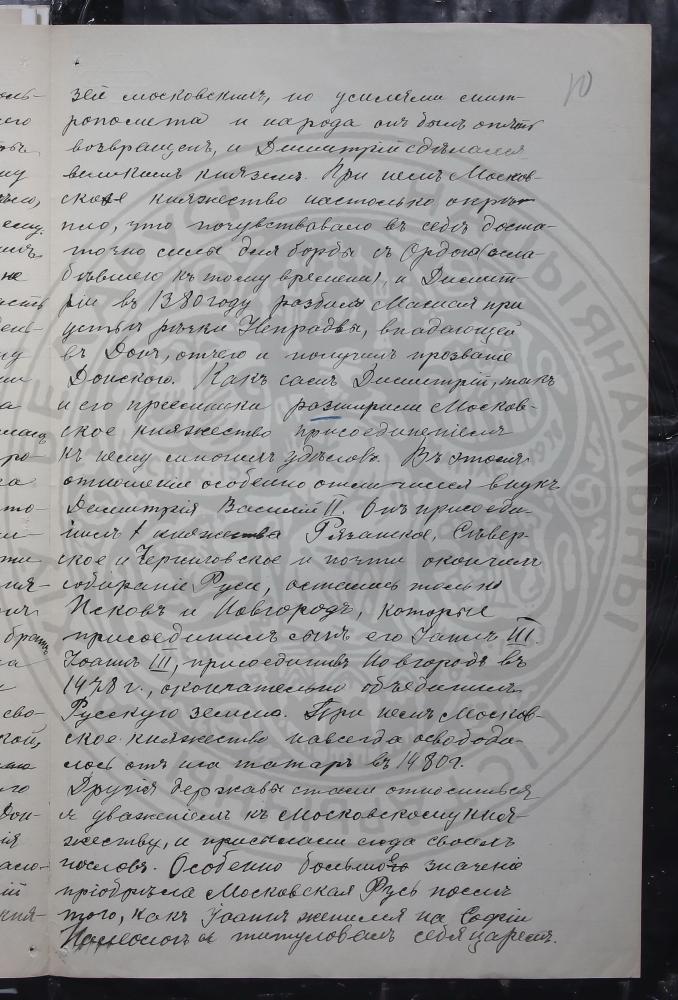 10
зей московскимъ, но усилиями мит-
рополита и народа онъ былъ опять
возвращенъ, и Димитрій сдѣлался
великимъ княземъ. При немъ Москов-
ское княжество настолько окрѣ-
пло, что почувствовало въ себѣ доста-
точно силы для борбы съ Ордою (осла-
бѣвшею къ тому времени), и Димит-
рій въ 1380 году разбилъ Мамая при
устьи рѣчки Непрядвы, впадающей
въ Донъ, отчего и получилъ прозваніе
Донского. Какъ самъ Димитрій, такъ
и его преемники розширили Москов-
ское княжество присоединеніемъ
къ нему многихъ удѣловъ. Въ этомъ
отношеніи особенно отличился внукъ
Димитрія Василій II. Онъ присоеди-
нилъ княжества Рязанское, Сѣвер-
ское и Черниговское и почти окончилъ
собираніе Руси, остались только
Псковъ и Новгородъ, которые
присоединилъ сынъ его Іоаннъ III.
Іоаннъ III, присоединивъ Новгородъ въ
1478 г., окончательно объединилъ
Русскую землю. При немъ Москов-
ское княжество навсегда освободи-
лось отъ ига татаръ въ 1480 г.
Другія державы стали относиться
съ уваженіемъ къ Московскому кня-
жеству, и присылали сюда своихъ
пословъ. Особенно большое значеніе
пріобрѣла Московская Русь послѣ
того, какъ Іоаннъ женился на Софіи
Палеологъ и титуловалъ себя царемъ.